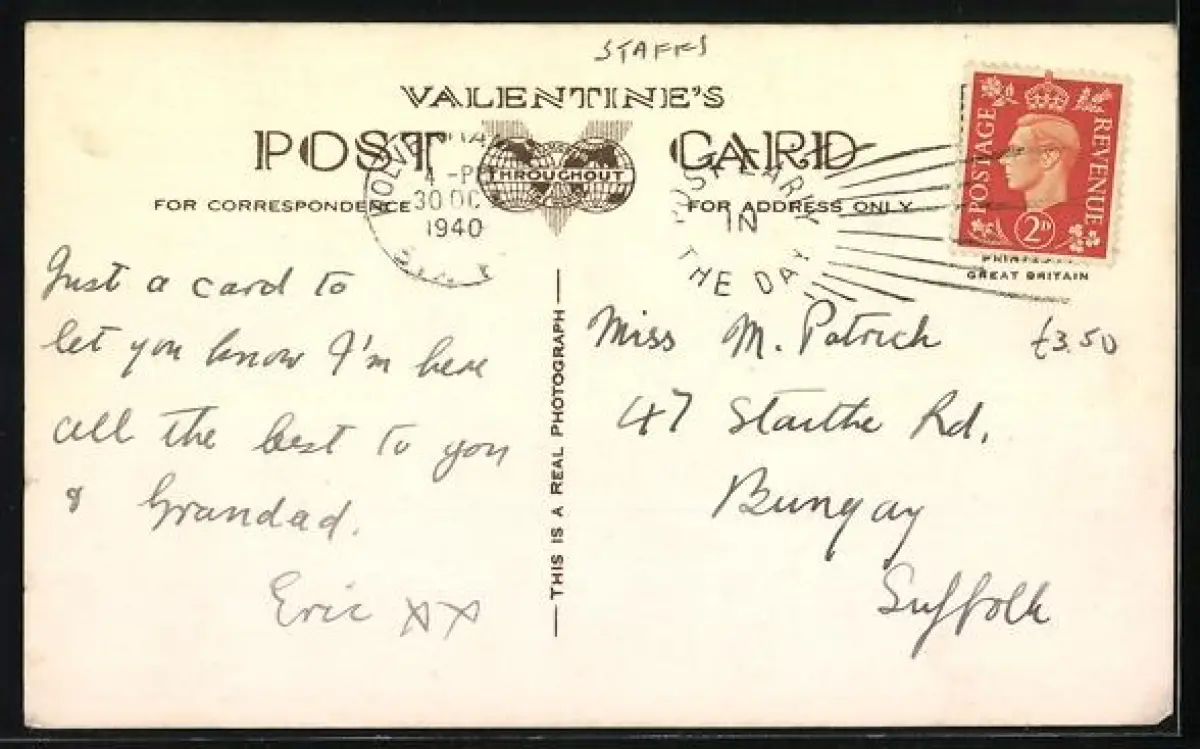 STAFFS
VALENTINE'S
POST CARD
THROUGHOUT
FOR CORRESPONDENCE
FOR ADDRESS ONLY
4 -P
30 OC
1940
POST EARLY
IN
THE DAY
POSTAGE
REVENUE
2D
GREAT BRITAIN
Just a card to
let you know I'm here
all the best to you
& Grandad.
Eric XX
THIS IS A REAL PHOTOGRAPH
Miss M. Patrick
£3.50
47 Staithe Rd.
Bungay
Suffolk